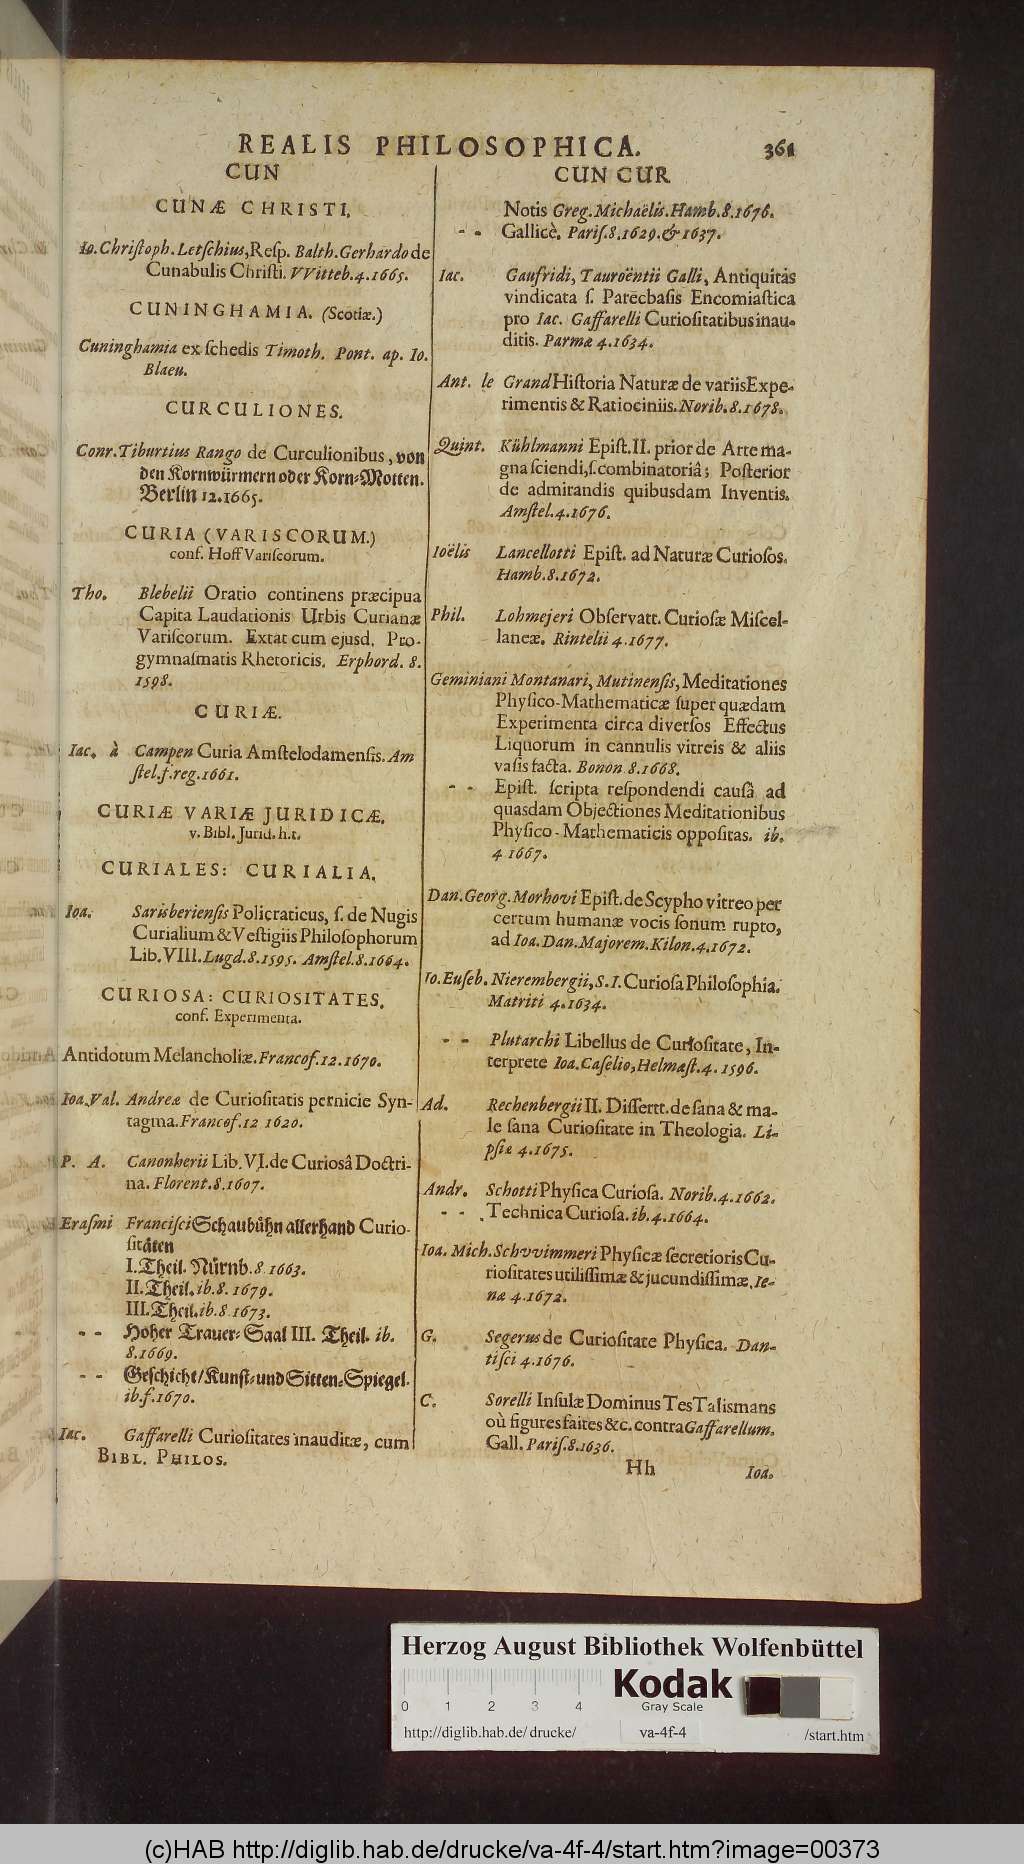 REALIS PHILOSOPHICA. 361
CUN
CUNÆ CHRISTI.
Io. Christoph. Letschius, Resp. Balth. Gerhardo de
Cunabulis Christi. VVitteb. 4. 1665.
CUNINGHAMIA. (Scotiæ.)
Cuninghamia ex schedis Timoth. Pont. ap. Io.
Blaeu.
CURCULIONES.
Conr. Tiburtius Rango de Curculionibus, von
den Kornwürmern oder Korn-Motten.
Berlin 12. 1665.
CURIA (VARISCORUM.)
conf. Hoff Variscorum.
Tho. Blebelii Oratio continens præcipua
Capita Laudationis Urbis Curianæ
Variscorum. Extat cum ejusd. Pro-
gymnasmatis Rhetoricis. Erphord. 8.
1598.
CURIÆ.
Iac. à Campen Curia Amstelodamensis. Am
stel. f. reg. 1661.
CURIÆ VARIÆ JURIDICÆ.
v. Bibl. Jurid. h.t.
CURIALES: CURIALIA.
Ioa. Sarisberiensis Policraticus, s. de Nugis
Curialium & Vestigiis Philosophorum
Lib. VIII. Lugd. 8. 1595. Amstel. 8. 1664.
CURIOSA: CURIOSITATES.
conf. Experimenta.
Antidotum Melancholiæ. Francof. 12. 1670.
Ioa. Val. Andreæ de Curiositatis pernicie Syn-
tagma. Francof. 12 1620.
P. A. Canonherii Lib. VI. de Curiosâ Doctri-
na. Florent. 8. 1607.
Erasmi Francisci Schaubühn allerhand Curio-
sitäten
I. Theil. Nürnb. 8. 1663.
II. Theil. ib. 8. 1679.
III. Theil. ib. 8 1673.
- - Hoher Trauer-Saal III. Theil. ib.
8. 1669.
- - Geschicht/Kunst-und Sitten-Spiegel.
ib. f. 1670.
Iac. Gaffarelli Curiositates inauditæ, cum
BIBL. PHILOS.
CUN CUR
Notis Greg. Michaëlis. Hamb. 8. 1676.
- - Gallicè. Paris. 8. 1629. & 1637.
Iac. Gaufridi, Tauroëntii Galli, Antiquitâs
vindicata s. Parecbasis Encomiastica
pro Iac. Gaffarelli Curiositatibus inau-
ditis. Parmæ 4. 1634.
Ant. le Grand Historia Naturæ de variis Expe-
rimentis & Ratiociniis. Norib. 8. 1678.
Quint. Kühlmanni Epist. II. prior de Arte ma-
gna sciendi, s. combinatoriâ; Posterior
de admirandis quibusdam Inventis.
Amstel. 4. 1676.
Ioëlis Lancellotti Epist. ad Naturæ Curiosos.
Hamb. 8. 1672.
Phil. Lohmejeri Observatt. Curiosæ Miscel-
laneæ. Rintelii 4. 1677.
Geminiani Montanari, Mutinensis, Meditationes
Physico-Mathematicæ super quædam
Experimenta circa diversos Effectus
Liquorum in cannulis vitreis & aliis
vasis facta. Bonon 8. 1668.
- - Epist. scripta respondendi causâ ad
quasdam Objectiones Meditationibus
Physico-Mathematicis oppositas. ib.
4 1667.
Dan. Georg. Morhovi Epist. de Scypho vitreo per
certum humanæ vocis sonum rupto,
ad Ioa. Dan. Majorem. Kilon. 4. 1672.
Io. Euseb. Nierembergii, S. I. Curiosa Philosophia.
Matriti 4. 1634.
- - Plutarchi Libellus de Curiositate, In-
terprete Ioa. Caselio, Helmæst. 4. 1596.
Ad. Rechenbergii II. Dissertt. de sana & ma-
le sana Curiositate in Theologia. Li-
psiæ 4. 1675.
Andr. Schotti Physica Curiosa. Norib. 4. 1662.
- - Technica Curiosa. ib. 4. 1664.
Ioa. Mich. Schvvimmeri Physicæ secretioris Cu-
riositates utilissimæ & jucundissimæ. Ie-
næ 4. 1672.
G. Segerus de Curiositate Physica. Dan-
tisci 4. 1676.
C. Sorelli Insulæ Dominus Tes Talismans
où figures faites &c. contra Gaffarellum.
Gall. Paris. 8. 1636.
Hh Ioa.
Herzog August Bibliothek Wolfenbüttel
0 1 2 3 4
Kodak
Gray Scale
http://diglib.hab.de/drucke/ va-4f-4 /start.htm
(c)HAB http://diglib.hab.de/drucke/va-4f-4/start.htm?image=00373